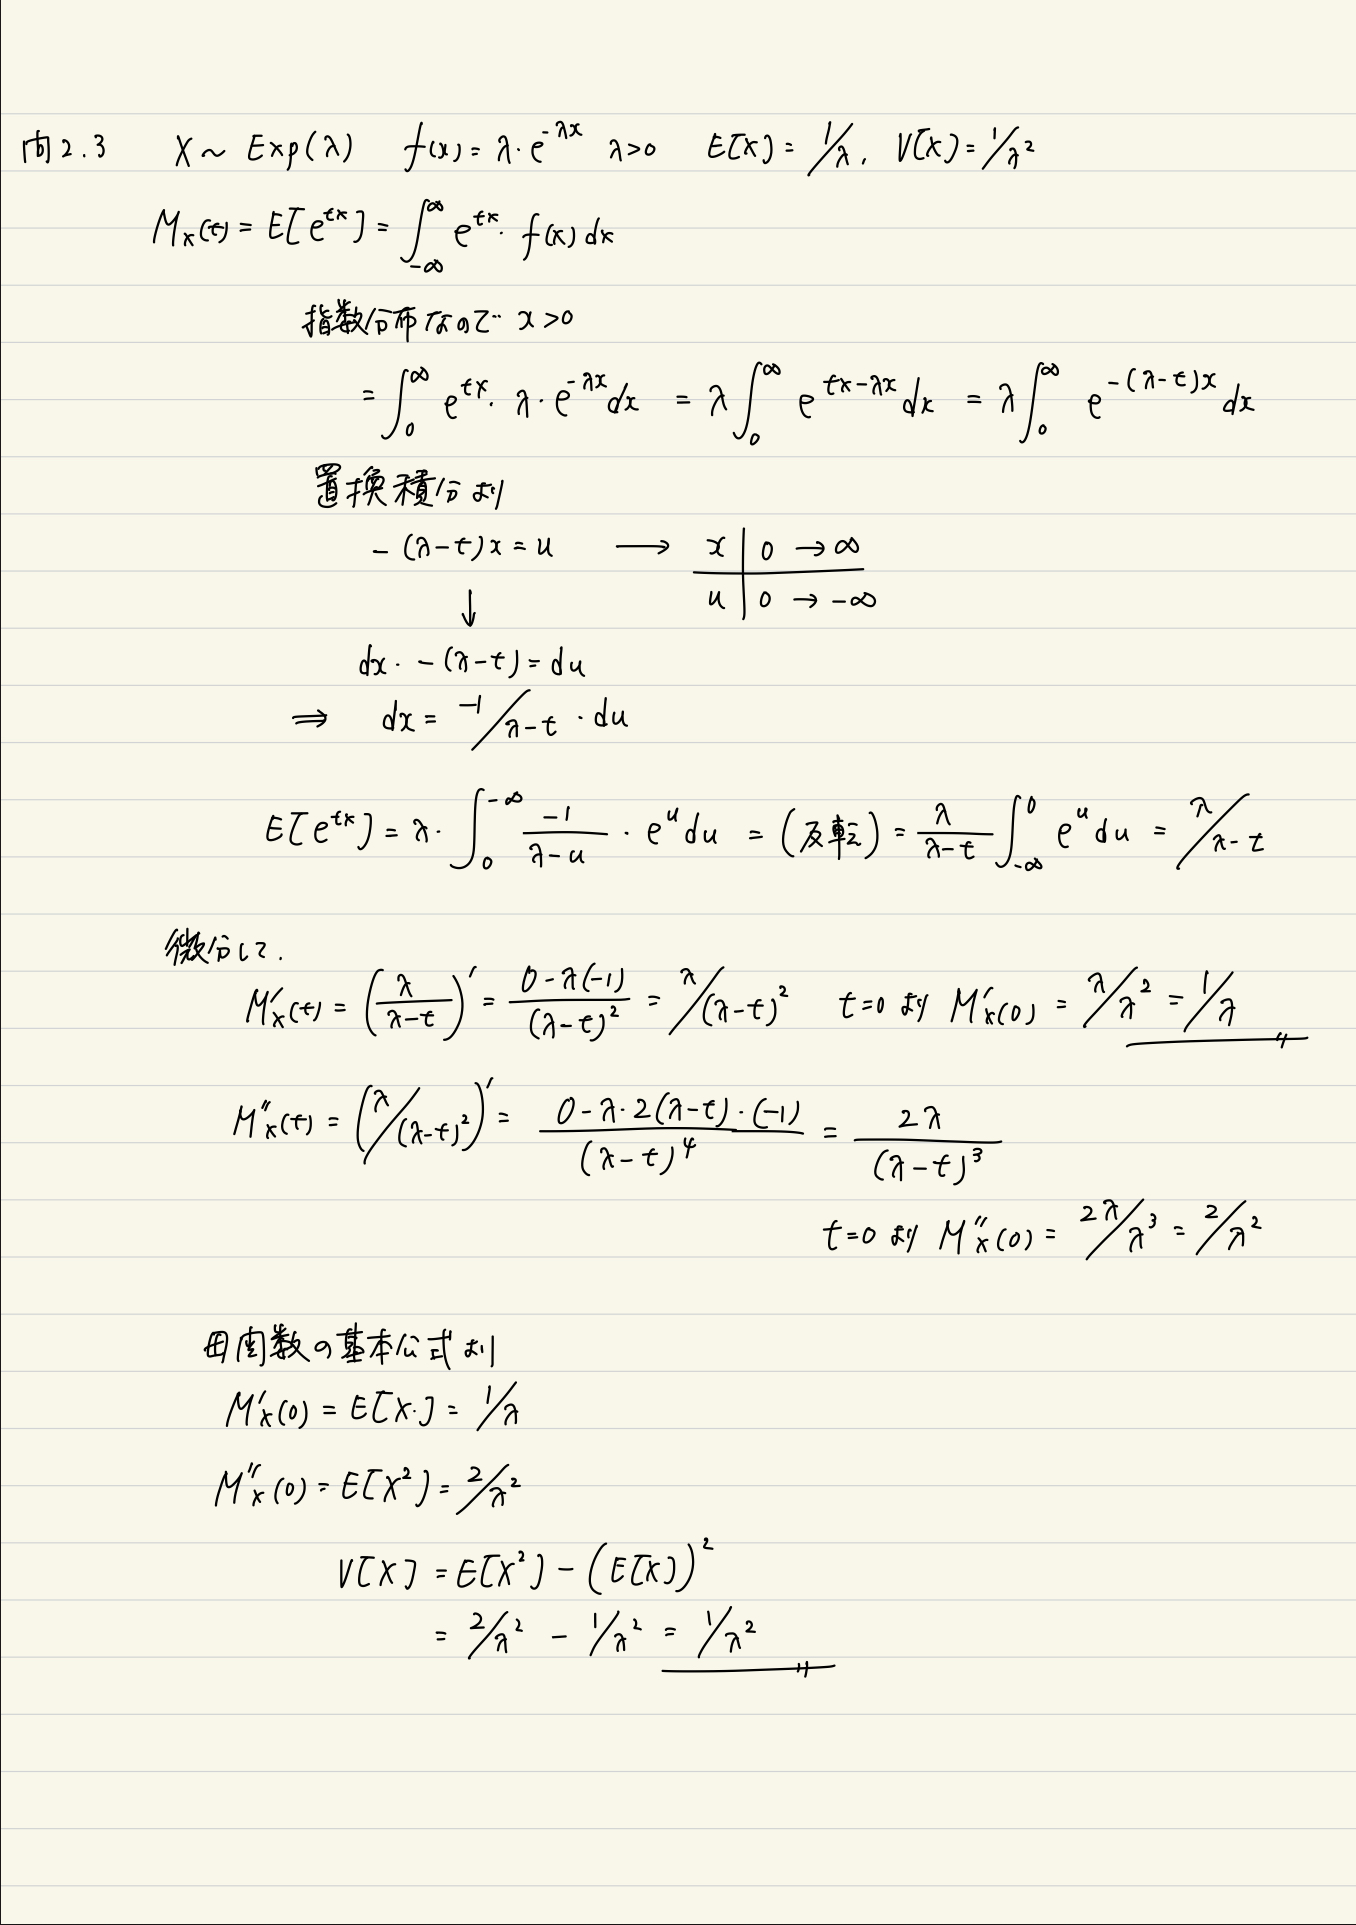 問2.3 X ~ Exp(λ) f(x) = λ・e^{-λx} λ>0 E[X] = 1/λ, V[X] = 1/λ²
M_X(t) = E[e^{tx}] = ∫_{-∞}^{∞} e^{tx}・f(x)dx
指数分布なので x>0
= ∫_0^∞ e^{tx}・λ・e^{-λx}dx = λ∫_0^∞ e^{tx-λx}dx = λ∫_0^∞ e^{-(λ-t)x}dx
置換積分より
-(λ-t)x = u → x | 0 → ∞
↓ u | 0 → -∞
dx・-(λ-t) = du
⇒ dx = -1/λ-t・du
E[e^{tx}] = λ・∫_0^{-∞} \frac{-1}{λ-u}・e^u du = (反転) = \frac{λ}{λ-t}∫_{-∞}^0 e^u du = λ/λ-t
微分して.
M'_X(t) = (\frac{λ}{λ-t})' = \frac{0-λ(-1)}{(λ-t)²} = λ/(λ-t)² t=0 より M'_X(0) = λ/λ² = 1/λ
M''_X(t) = (λ/(λ-t)²)' = \frac{0-λ・2(λ-t)・(-1)}{(λ-t)⁴} = \frac{2λ}{(λ-t)³}
t=0 より M''_X(0) = 2λ/λ³ = 2/λ²
母関数の基本公式より
M'_X(0) = E[X.] = 1/λ
M''_X(0) = E[X²] = 2/λ²
V[X] = E[X²] - (E[X])²
= 2/λ² - 1/λ² = 1/λ²